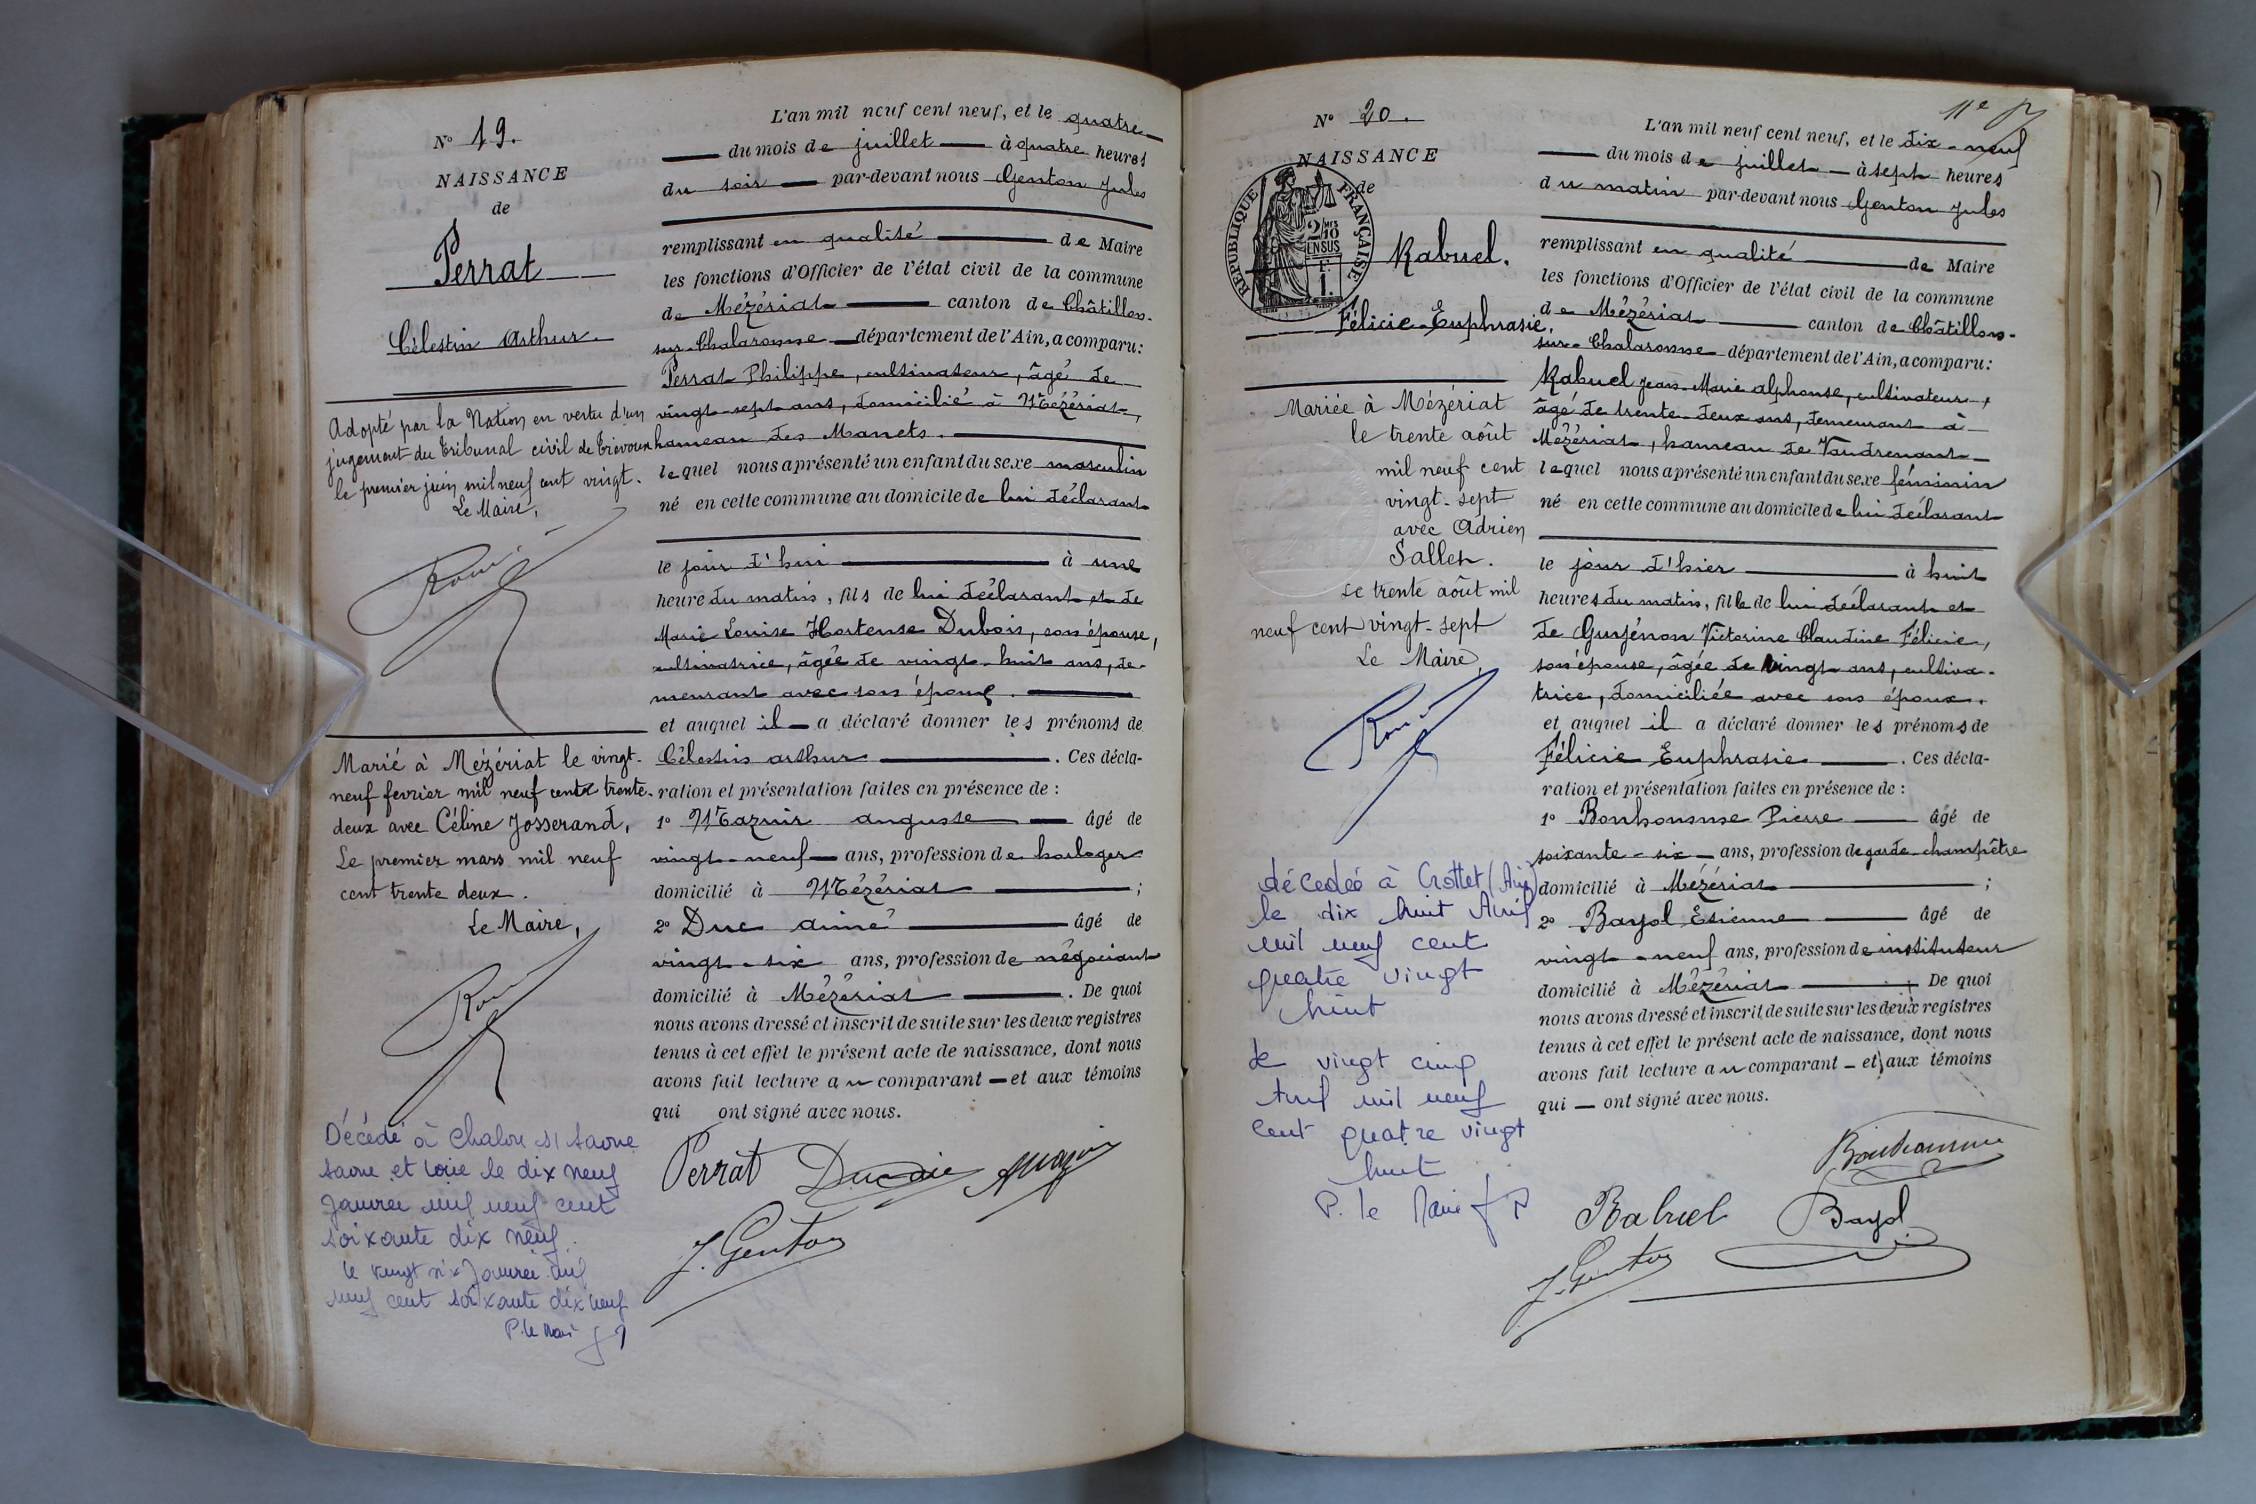 N° 19.
NAISSANCE
de
Perrat
Célestin Arthur.
Adopté par la Nation en vertu d'un
jugement du Tribunal civil de Trévoux
le premier juin mil neuf cent vingt.
Le Maire,
Marié à Mézériat le vingt-
neuf fevrier mil neuf cent trente-
deux avec Céline Josserand,
Le premier mars mil neuf
cent trente deux.
Le Maire,
Décédé à Chalon s/ Saone
Saone et Loire le dix neuf
Janvier mil neuf cent
soixante dix neuf.
le vingt six Janvier mil
neuf cent soixante dix neuf
P. le Maire
L'an mil neuf cent neuf, et le quatre
du mois de juillet à quatre heures
du soir par-devant nous Genton Jules
remplissant en qualité de Maire
les fonctions d'Officier de l'état civil de la commune
de Mézériat canton de Châtillon-
sur-Chalaronne département de l'Ain, a comparu:
Perrat Philippe, cultivateur, âgé de
vingt-sept ans, domicilié à Mézériat,
hameau des Manets.
lequel nous a présenté un enfant du sexe masculin
né en cette commune au domicile de lui déclarant
le jour d'hui à une
heure du matin, fils de lui déclarant et de
Marie Louise Hortense Dubois, son épouse,
cultivatrice, âgée de vingt-huit ans, de-
meurant avec son époux.
et auquel il a déclaré donner les prénoms de
Célestin arthur . Ces décla-
ration et présentation faites en présence de :
1° Mazuir auguste âgé de
vingt-neuf ans, profession de horloger
domicilié à Mézériat ;
2° Duc aimé âgé de
vingt-six ans, profession de négociant
domicilié à Mézériat . De quoi
nous avons dressé et inscrit de suite sur les deux registres
tenus à cet effet le présent acte de naissance, dont nous
avons fait lecture au comparant et aux témoins
qui ont signé avec nous.
Perrat
J. Genton
11e
N° 20.
NAISSANCE
de
RÉPUBLIQUE FRANÇAISE
2/10
EN SUS
1F.
Rabuel.
Félicie Euphrasie.
Mariée à Mézériat
le trente août
mil neuf cent
vingt-sept
avec Adrien
Sallet.
Le trente août mil
neuf cent vingt-sept
Le Maire,
décédée à Crottet (Ain)
le dix huit Avril
mil neuf cent
quatre vingt
huit
le vingt cinq
Avril mil neuf
cent quatre vingt
huit
P. le Maire
L'an mil neuf cent neuf, et le dix-neuf
du mois de juillet à sept heures
du matin par-devant nous Genton Jules
remplissant en qualité de Maire
les fonctions d'Officier de l'état civil de la commune
de Mézériat canton de Châtillon-
sur-Chalaronne département de l'Ain, a comparu:
Rabuel Jean-Marie alphonse, cultivateur,
âgé de trente-deux ans, demeurant à
Mézériat, hameau de Vaudrenant
lequel nous a présenté un enfant du sexe féminin
né en cette commune au domicile de lui déclarant
le jour d'hier à huit
heures du matin, fille de lui déclarant et
de Guyénon Victorine Claudine Félicie,
son épouse, âgée de vingt ans, cultiva-
trice, domiciliée avec son époux.
et auquel il a déclaré donner les prénoms de
Félicie Euphrasie . Ces décla-
ration et présentation faites en présence de :
1° Bonhomme Pierre âgé de
soixante-six ans, profession de garde-champêtre
domicilié à Mézériat ;
2° Bayol Etienne âgé de
vingt-neuf ans, profession de instituteur
domicilié à Mézériat . De quoi
nous avons dressé et inscrit de suite sur les deux registres
tenus à cet effet le présent acte de naissance, dont nous
avons fait lecture au comparant et aux témoins
qui ont signé avec nous.
Bonhomme
Rabuel Bayol
J. Genton